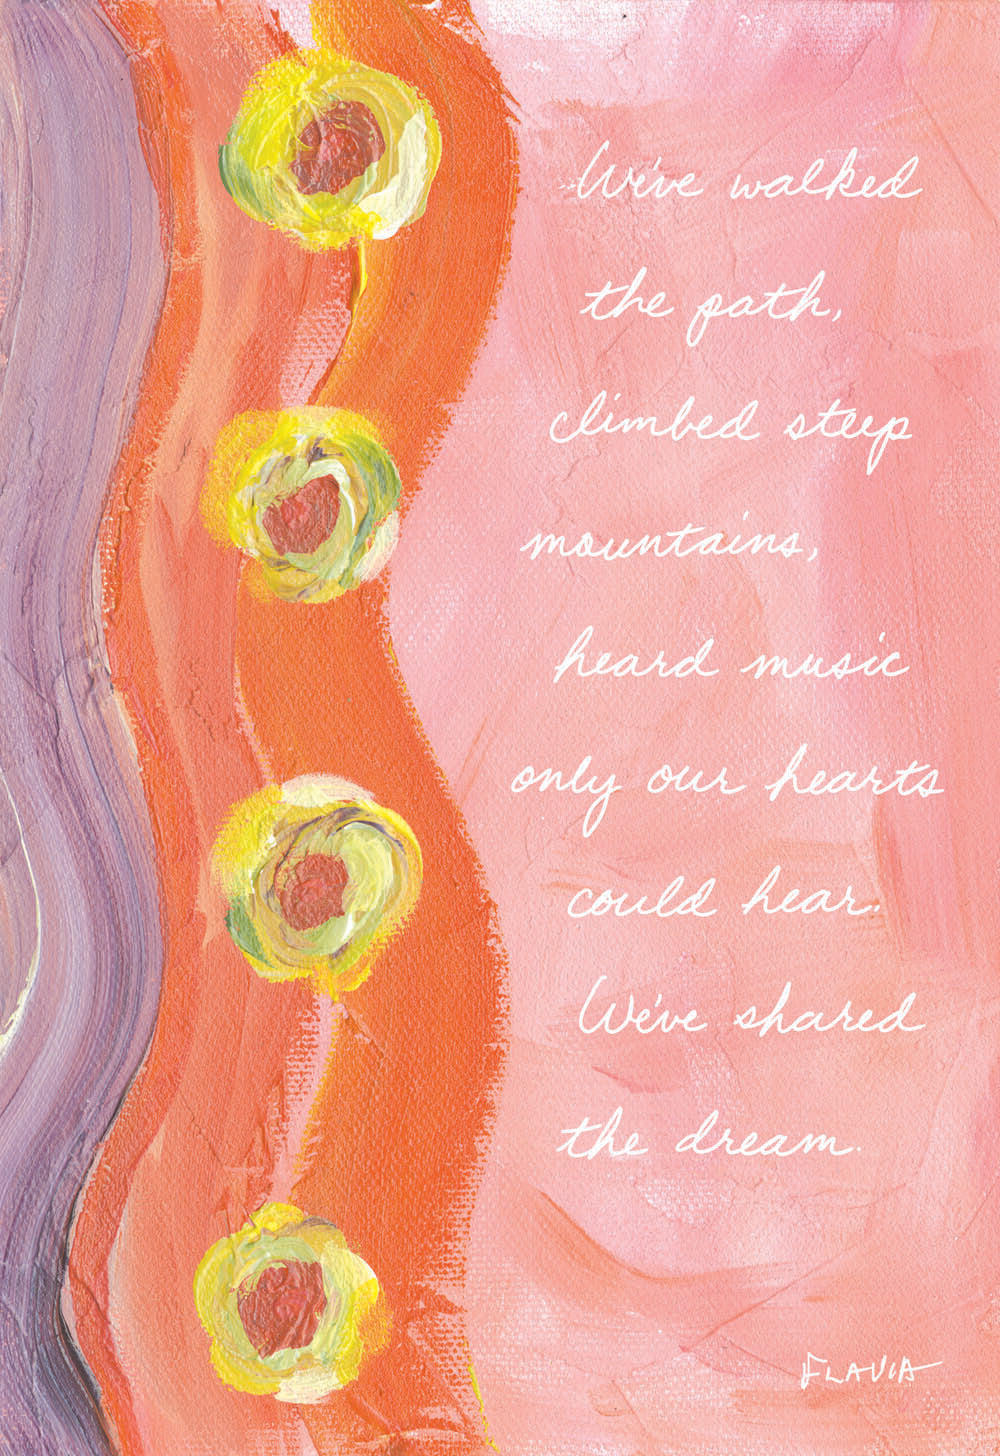 We've walked
the path,
climbed steep
mountains,
heard music
only our hearts
could hear.
We've shared
the dream.
FLAVIA